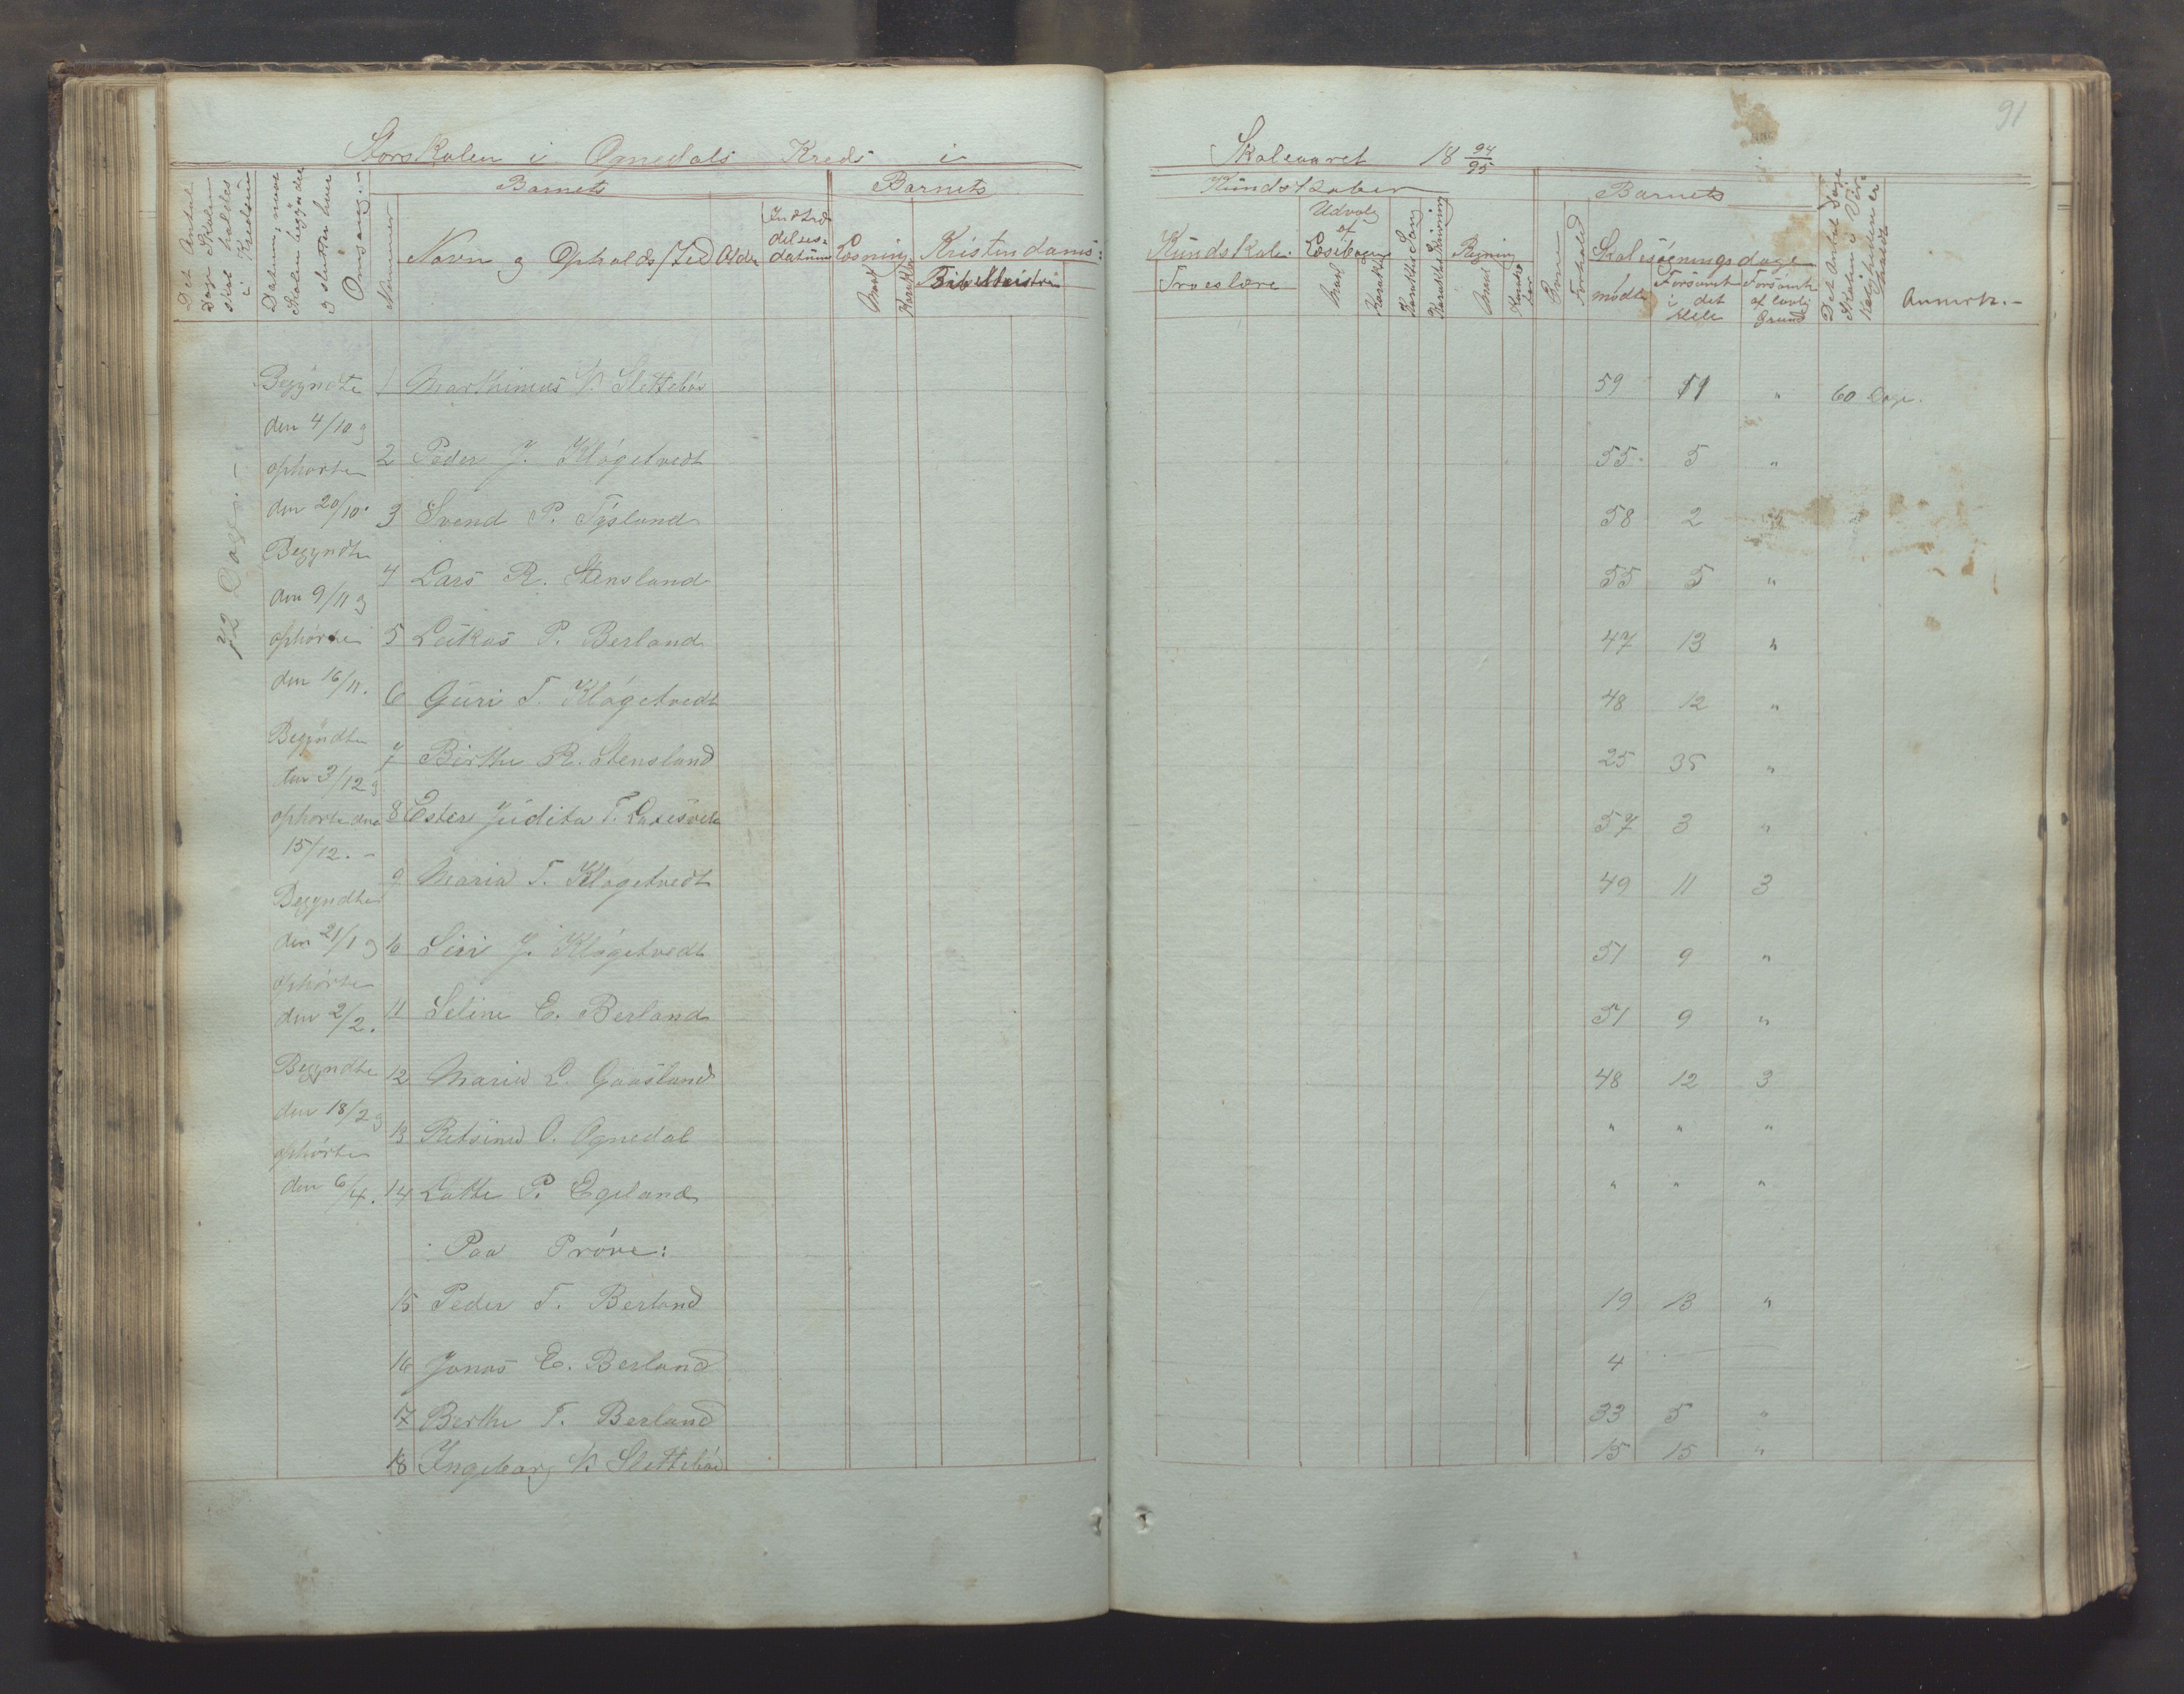 91
Storskolen i Ognedals Kreds i Skoleaaret 18 94/95
Det Antal Dage Skolen skal holdes i Kredsen
Datum, naar Skolen begyndte og slutter hver Omgang.-
Nummer
Barnets
Navn og Opholds Sted
Alder
Indtrædelses-datum
Barnets
Læsning
Maal
Karakter
Kristendoms-
Bibelhistorie
Kundskaber
Kundskab.
Troeslære
Udvalg af Læsebogen
Maal
Karakter
Karakter Sang
Karakter Skrivning
Regning
Maal
Karakter
Evne
Forhold
Barnets
Skolesøgningsdage
mødte
Forsømt i det Hele
Forsømt af lovlig Grund
Det Antal Dage Skolen i Virkeligheden er holdt
Anmerk.-
72 Dage.-
Begyndte
den 4/10 og
ophørte
den 20/10.
Begyndte
den 9/11 og
ophørte
den 16/11.
Begyndte
den 3/12 og
ophørte den
15/12.-
Begyndte
den 21/1 og
ophørte
den 2/2.
Begyndte
den 18/2 og
ophørte
den 6/4.
1 Marthinius N. Slettebø 59 1 " 60 Dage.
2 Peder J. Kløgetvedt 55 5 "
3 Svend P. Tysland 58 2 "
4 Lars R. Stensland 55 5 "
5 Lukas P. Berland 47 13 "
6 Guri T. Kløgetvedt 48 12 "
7 Birthe R. Stensland 25 35 "
8 Ester Judita T. 57 3 "
9 Maria T. Kløgetvedt 49 11 3
10 Siri J. Kløgetvedt 51 9 "
11 Seline E. Berland 51 9 "
12 Maria L. Gaasland 48 12 3
13 Betsine O. Ognedal " " "
14 Lotte P. Egeland " " "
Paa Prøve:
15 Peder T. Berland 19 13 "
16 Jonas E. Berland 4
17 Berthe T. Berland 33 5 "
18 Ingeborg N. Slettebø 15 15 "